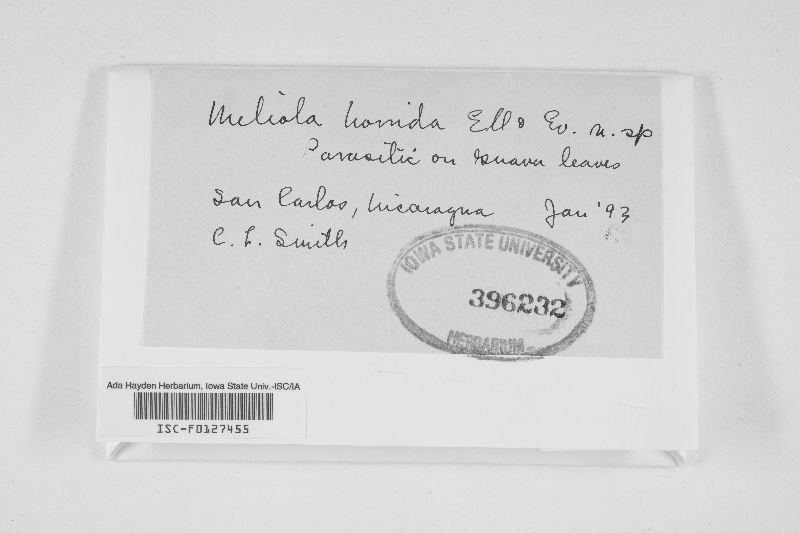 Meliola horrida Ell & Ev. n. sp
Parasitic on guava leaves
San Carlos, Nicaragua Jan '93
C. L. Smith
IOWA STATE UNIVERSITY
396232
HERBARIUM
Ada Hayden Herbarium, Iowa State Univ.-ISC/IA
ISC-F0127455